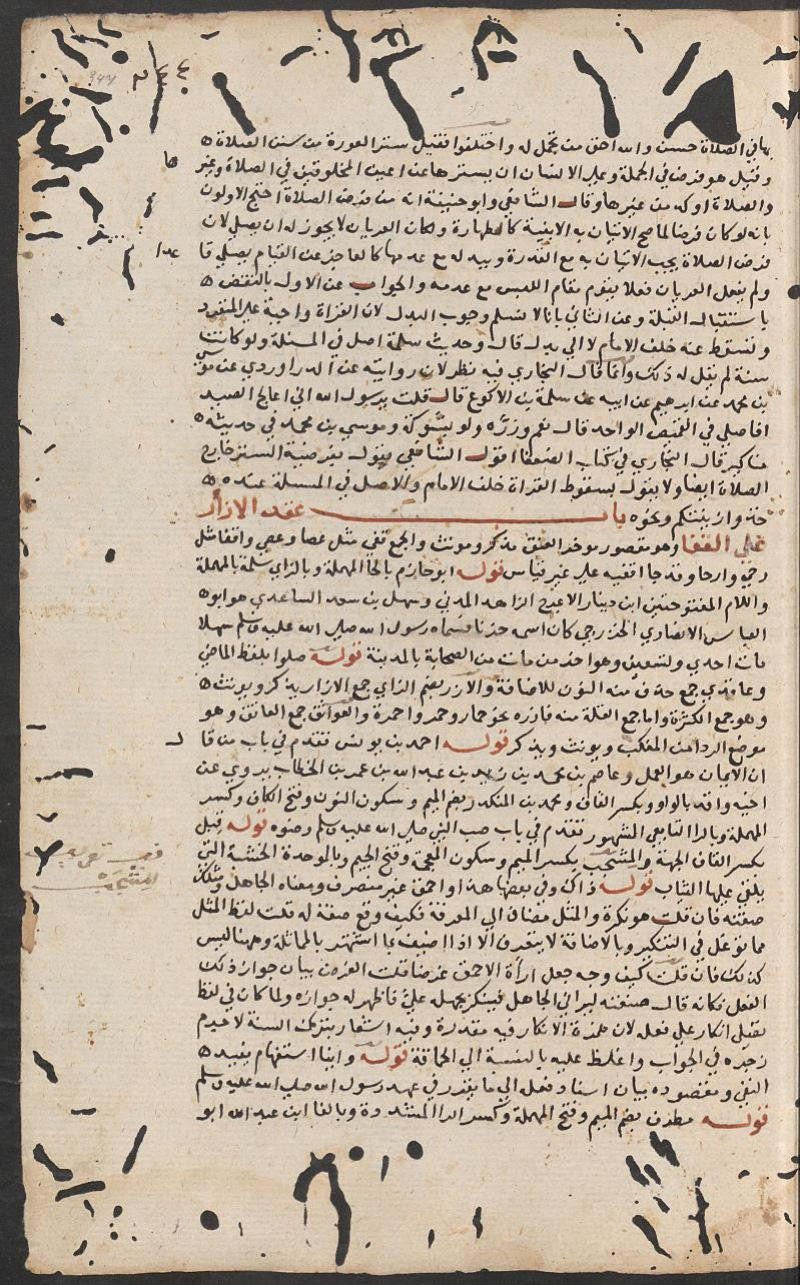 بها في الصلاة حسن والله احق من تجمل له واختلفوا فقيل ستر العورة من سنن الصلاة
وقيل هو فرض في الجملة وعلى الانسان ان يسترها عن اعين المخلوقين في الصلاة وغير
والصلاة اوكد من غيرها وقال الشافعي وابو حنيفة انه من فرض الصلاة احتج الاولون
بانه لو كان فرضا لما صح الاتيان به الا بنية كالطهارة ولكان العريان لا يجوز له ان يصلي لان
فرض الصلاة يجب الاتيان به مع القدرة وببدله مع عدمها كالعاجز عن القيام يصلي قا
عدا
ولم يفعل العريان فعلا يقوم مقام اللبس مع عدمه والجواب عن الاول بالنقض
باستقبال القبلة وعن الثاني بانا لا نسلم وجوب البدل لان القراة واجبة على المنفرد
وتسقط عنه خلف الامام لا الى بدل قال وحديث سلمة اصل في المسئلة ولو كانت
سنة لم يقل له ذلك وانما قال البخاري فيه نظر لان روايته عن الدراوردي عن موسى
بن محمد عن ابرهيم عن ابيه عن سلمة بن الاكوع قال قلت يرسول الله اني اعالج الصيد
افاصلي في القميص الواحد قال نعم وزره ولو بشوكة وموسى بن محمد في حديثه
مناكير قال البخاري في كتاب الضعفا اقول الشافعي يقول بفرضية الستر خارج
الصلاة ايضا ولا يقول بسقوط القراة خلف الامام والاصل في المسئلة عنده
خذوا زينتكم ونحوه باب عقد الازار
على القفا وهو مقصور موخر العنق مذكر ومونث والجمع قفي مثل عصا وعصي واقفا مثل
رحى وارحا وقد جا اقفية على غير قياس قوله ابو حازم بالحا المهملة وبالزاي سلمة بالمهملة
واللام المفتوحتين ابن دينار الاعرج الزاهد المدني وسهل بن سعد الساعدي هو ابو
العباس الانصاري الخزرجي كان اسمه حزنا فسماه رسول الله صلى الله عليه وسلم سهلا
مات احدى وتسعين وهو اخر من مات من الصحابة بالمدينة قوله صلوا بلفظ الماضي
وعاقدي جمع حذف منه النون للاضافة والازر بضم الزاي جمع الازار يذكر ويونث
وهو جمع الكثرة واما جمع القلة منه فازره نحو حمار وحمر واحمرة والعواتق جمع العاتق وهو
موضع الردا من المنكب ويونث ويذكر قوله احمد بن يونس تقدم في باب من قال
ان الايمان هو العمل وعاصم بن محمد بن زيد بن عبد الله بن عمر بن الخطاب يروي عن
اخيه واقد بالواو وبكسر القاف ومحمد بن المنكدر بضم الميم وسكون النون وفتح الكاف وكسر
المهملة وبالرا التابعي المشهور تقدم في باب صب النبي صلى الله عليه وسلم وضوه قوله قبل
بكسر القاف الجهة والمشجب بكسر الميم وسكون المعجمة وفتح الجيم وبالموحدة الخشبة التي
يلقى عليها الثياب قوله ذاك وفي بعضها هذا واحمق غير منصرف ومعناه الجاهل ومثلك
صفته فان قلت هو نكرة والمثل مضاف الى المعرفة فكيف وقع صفة له قلت لفظ المثل
مما توغل في التنكير وبالاضافة لا يتعرف الا اذا اضيف بما اشتهر بالمماثلة وههنا ليس
كذلك فان قلت كيف وجه جعل ارأة الاحمق غرضا قلت الغرض بيان جواز ذلك
الفعل فكانه قال صنعته ليراني الجاهل فينكر بجهله علي فاظهر له جوازه ولما كان في لفظ
تصنع انكار على فعله لان همزة الانكار فيه مقدرة وفيه اشعار بترك السنة لا جرم
زجره في الجواب واغلظ عليه بالنسبة الى الحماقة قوله واينا استفهام يفيد
النفي ومقصوده بيان اسناد فعله الى ما تقرر في عهد رسول الله صلى الله عليه وسلم
قوله مطرف بضم الميم وفتح المهملة وكسر الرا المشددة وبالفا ابن عبد الله ابو